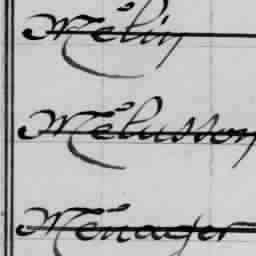 Mélin
Mélusson
Ménager